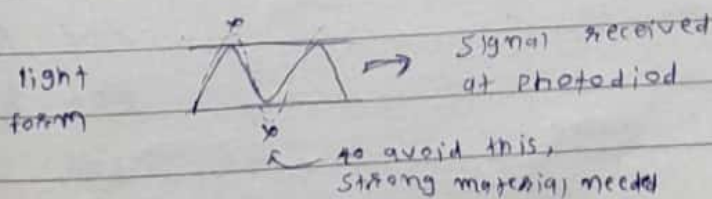 light
form
signal received
at photodiod
to avoid this,
strong material needed